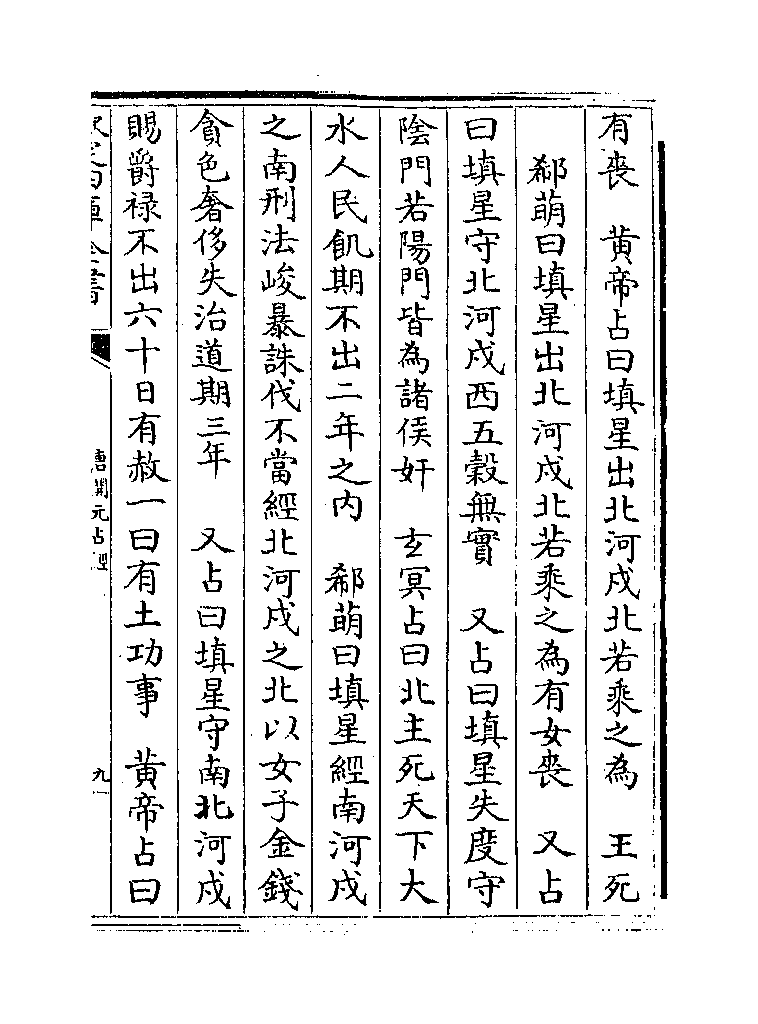 有喪　黄帝占曰填星出北河戍北若乘之為　王死
郗萌曰填星出北河戍北若乘之為有女喪　又占
曰填星守北河戍西五穀無實　又占曰填星失度守
陰門若陽門皆為諸侯奸　玄冥占曰北主死天下大
水人民飢期不出二年之内　郗萌曰填星經南河戍
之南刑法峻暴誅伐不當經北河戍之北以女子金錢
貪色奢侈失治道期三年　又占曰填星守南北河戍
賜爵禄不出六十日有赦一曰有土功事　黄帝占曰
欽定四庫全書
唐開元占經
九